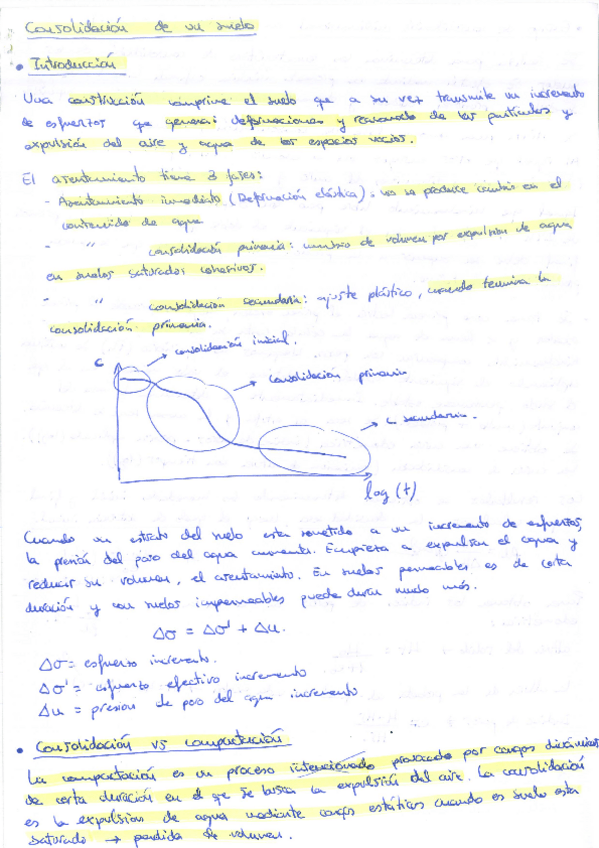 Consolidación de un suelo
• Introducción
Una construcción comprime el suelo que a su vez transmite un incremento
de esfuerzos que genera: deformaciones y reacomodo de las partículas y
expulsión del aire y agua de los espacios vacíos.
El asentamiento tiene 3 fases:
- Asentamiento inmediato (Deformación elástica). no se produce cambio en el
contenido de agua
- " consolidación primaria: cambio de volumen por expulsión de agua
en suelos saturados cohesivos.
- " consolidación secundaria: ajuste plástico, cuando termina la
consolidación primaria.
e
consolidación inicial.
consolidación primaria
c secundaria.
log (t)
Cuando un estrato del suelo esta sometido a un incremento de esfuerzos,
la presión del poro del agua aumenta. Empieza a expulsar el agua y
reducir su volumen, el asentamiento. En suelos permeables es de corta
duración y con suelos impermeables puede durar mucho más.
Δσ = Δσ' + Δu.
Δσ = esfuerzo incremento.
Δσ' = esfuerzo efectivo incremento
Δu = presion de poro del agua incremento
• Consolidación vs compactación
La compactación es un proceso intencionado provocado por cargas dinámicas
de corta duración en el que se busca la expulsión del aire. La consolidación
es la expulsión de agua mediante cargas estáticas cuando es suelo esta
saturado → perdida de volumen.